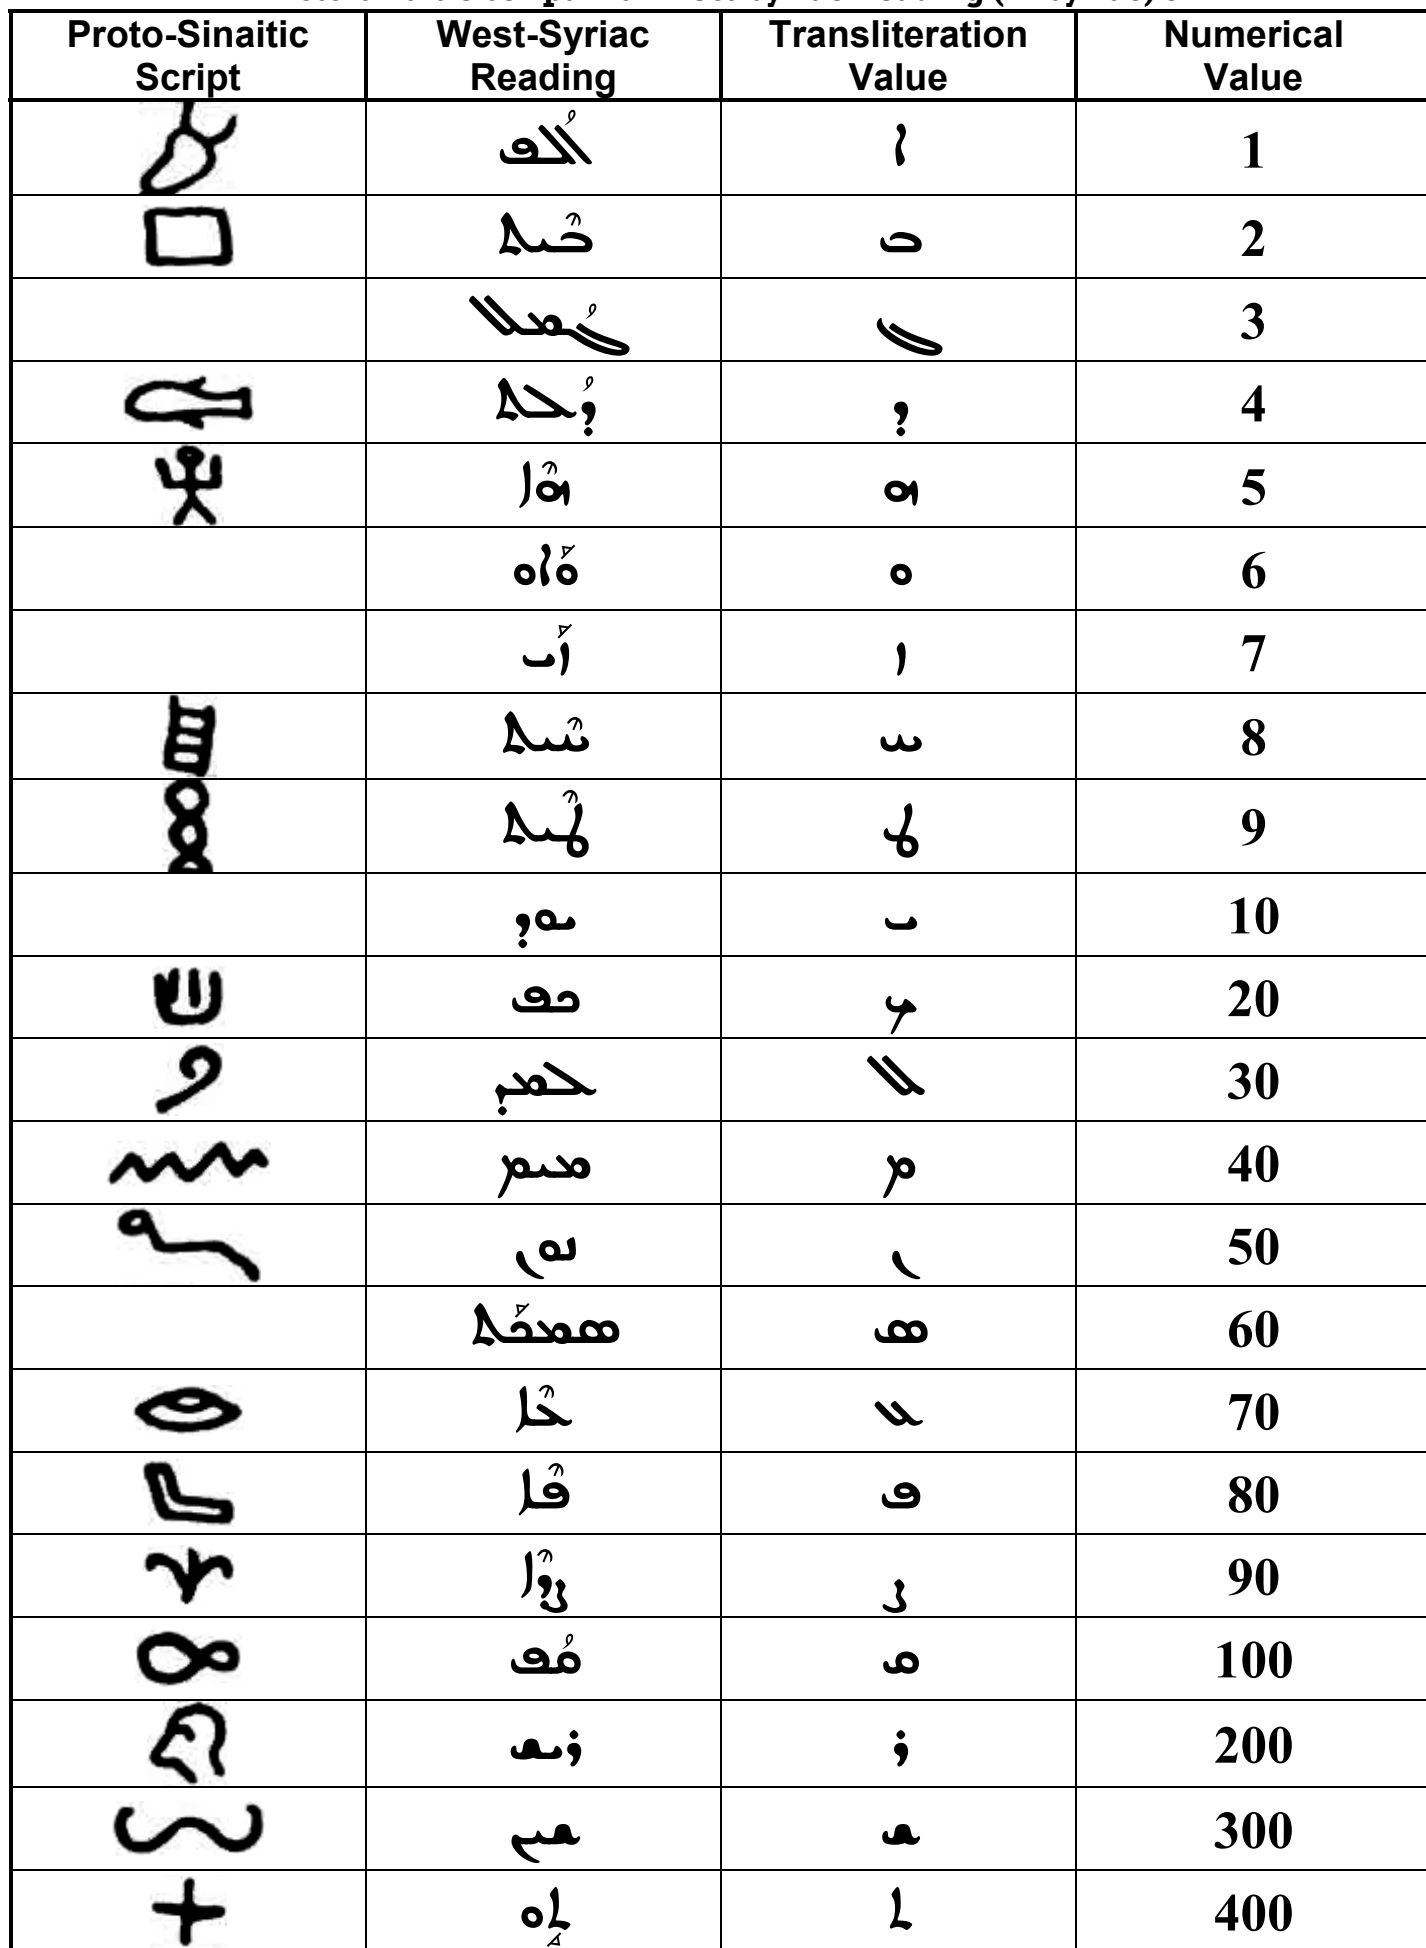 Proto-Sinaitic Script West-Syriac Reading Transliteration Value Numerical Value
ܐܳܠܰܦ ܐ 1
ܒܶܝܬ ܒ 2
ܓܳܡܠ ܓ 3
ܕܳܠܬ ܕ 4
ܗܶܐ ܗ 5
ܘܰܐܘ ܘ 6
ܙܰܝ ܙ 7
ܚܶܝܬ ܚ 8
ܛܶܝܬ ܛ 9
ܝܘܕ ܝ 10
ܟܦ ܟ 20
ܠܡܕ ܠ 30
ܡܝܡ ܡ 40
ܢܘܢ ܢ 50
ܣܡܟܰܬ ܣ 60
ܥܶܐ ܥ 70
ܦܶܐ ܦ 80
ܨܕܶܐ ܨ 90
ܩܳܦ ܩ 100
ܪܝܫ ܪ 200
ܫܝܢ ܫ 300
ܬܱܘ ܬ 400